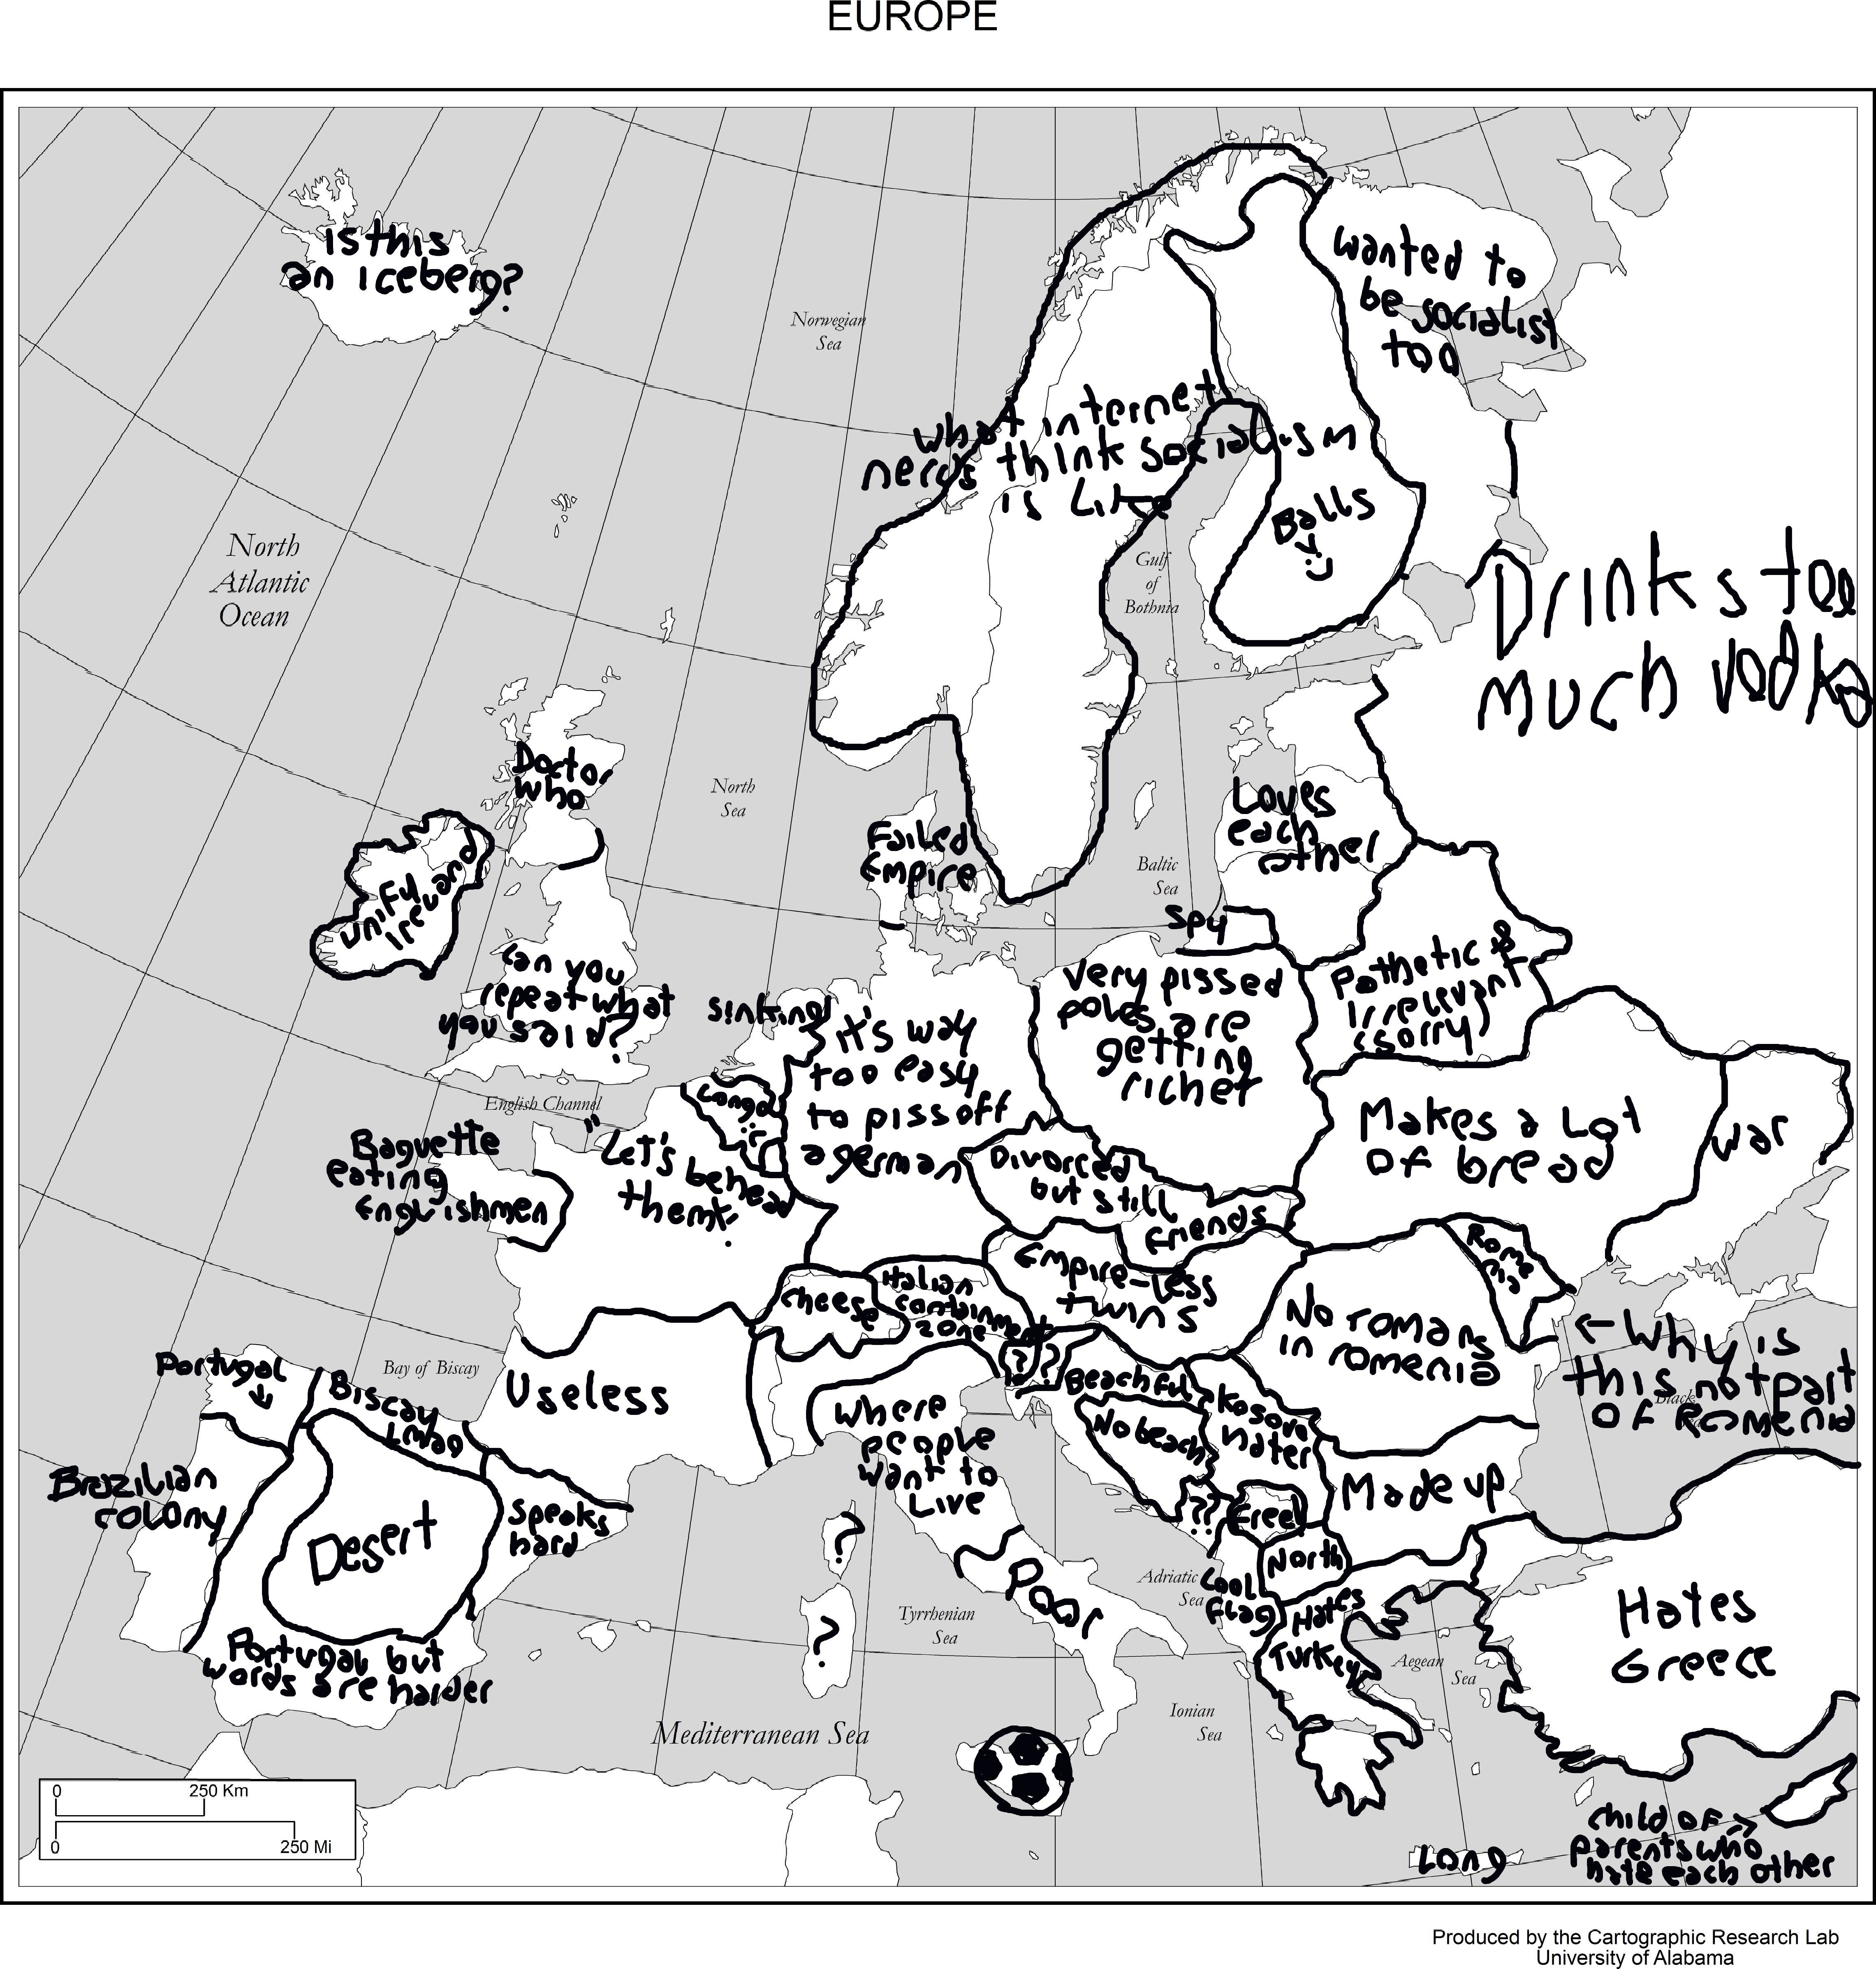 EUROPE
is this
an iceberg?
Norwegian
Sea
wanted to
be socialist
too
what internet
nerds think socialism
is like
Balls
:)
Gulf
of
Bothnia
North
Atlantic
Ocean
Drinks too
much vodka
Doctor
who
North
Sea
Failed
Empire
Baltic
Sea
Loves
each
other
Spy
unify
Ireland
can you
repeat what
you said?
sinking
it's way
too easy
to piss off
a german
very pissed
poles are
getting
richer
Pathetic &
irrelevant
(sorry)
Makes a Lot
OF bread
war
English Channel
Congo
:(
Baguette
eating
Englishmen
Let's behead
them!
Divorced
but still
friends
Empire-less
twins
cheese
italian
containment
zone
No romans
in romenia
Romenia
← Why is
this not part
OF Romenia
Black
Portugal
↓
Bay of Biscay
Biscay
Lmao
Useless
Where
people
want to
Live
?
?
Beachful
No beach
Kosovo
hater
Made up
??
Free!
North
Brazilian
colony
Desert
Speaks
hard
?
?
Poor
Adriatic
Sea
Cool
Flag
Hates
Turkey
Aegean
Sea
Hates
Greece
Tyrrhenian
Sea
Portugal but
words are harder
Mediterranean Sea
Ionian
Sea
0 250 Km
0 250 Mi
Long
child OF →
parents who
hate each other
Produced by the Cartographic Research Lab
University of Alabama